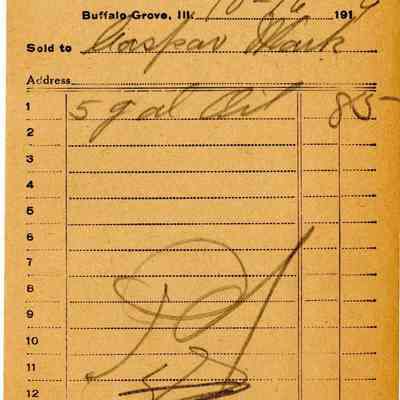 Buffalo Grove, Ill. 10-16 1914
Sold to Caspar Clark
Address
1 5 gal Oil 85
2
3
4
5
6
7
8
9
10
11
12